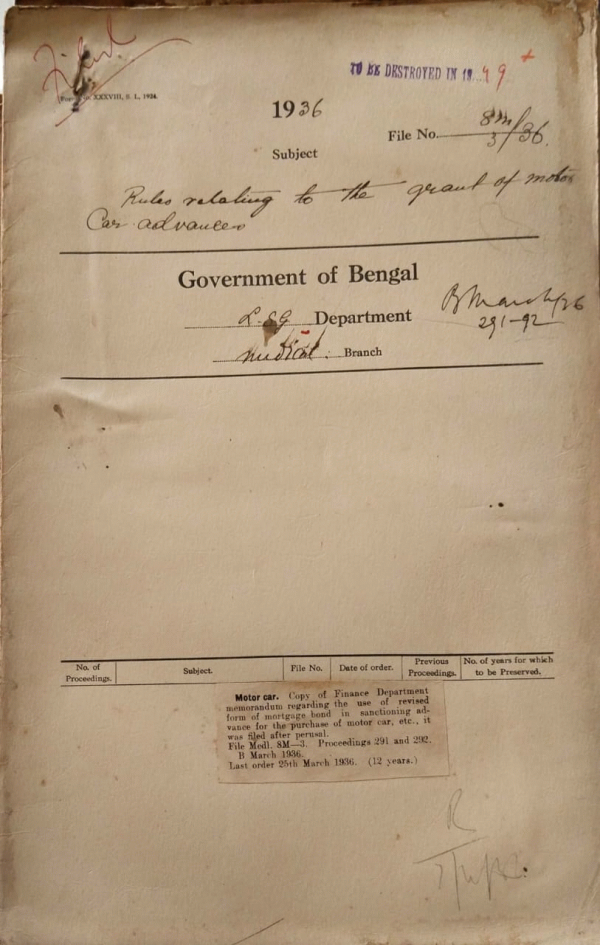 Filed
TO BE DESTROYED IN 19 49
XXXVIII, S. L., 1934.
1936
File No. 8M/3/36.
Subject
Rules relating to the grant of motor
Car advances
Government of Bengal
L.S.G. Department
B March/36
291-92
Medical. Branch
No. of Proceedings. Subject. File No. Date of order. Previous Proceedings. No. of years for which to be Preserved.
Motor car. Copy of Finance Department
memorandum regarding the use of revised
form of mortgage bond in sanctioning ad-
vance for the purchase of motor car, etc., it
was filed after perusal.
File Medl. 8M—3. Proceedings 291 and 292.
B March 1936.
Last order 25th March 1936. (12 years.)
R